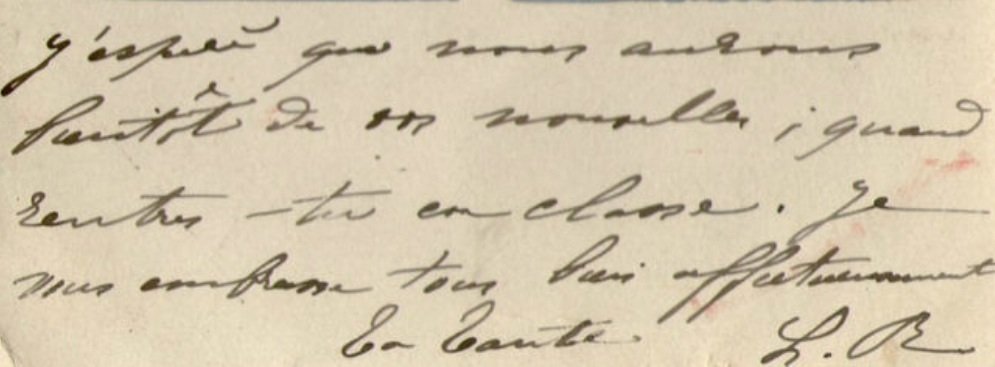 J'espère que nous aurons
bientôt de vos nouvelles ; quand
rentres-tu en classe. Je
vous embrasse tous bien affectueusement
Ta Tante L. R